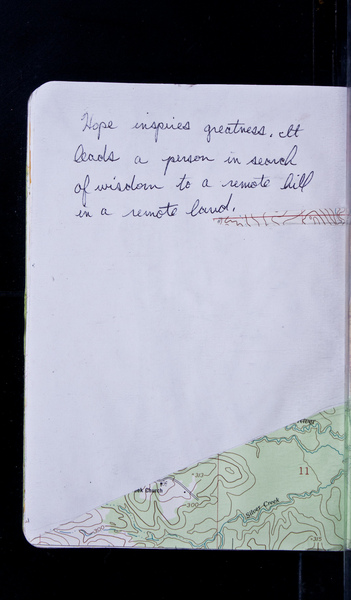 Hope inspires greatness. It
leads a person in search
of wisdom to a remote hill
in a remote land.
313
Church
300
11
Silver Creek
300
315